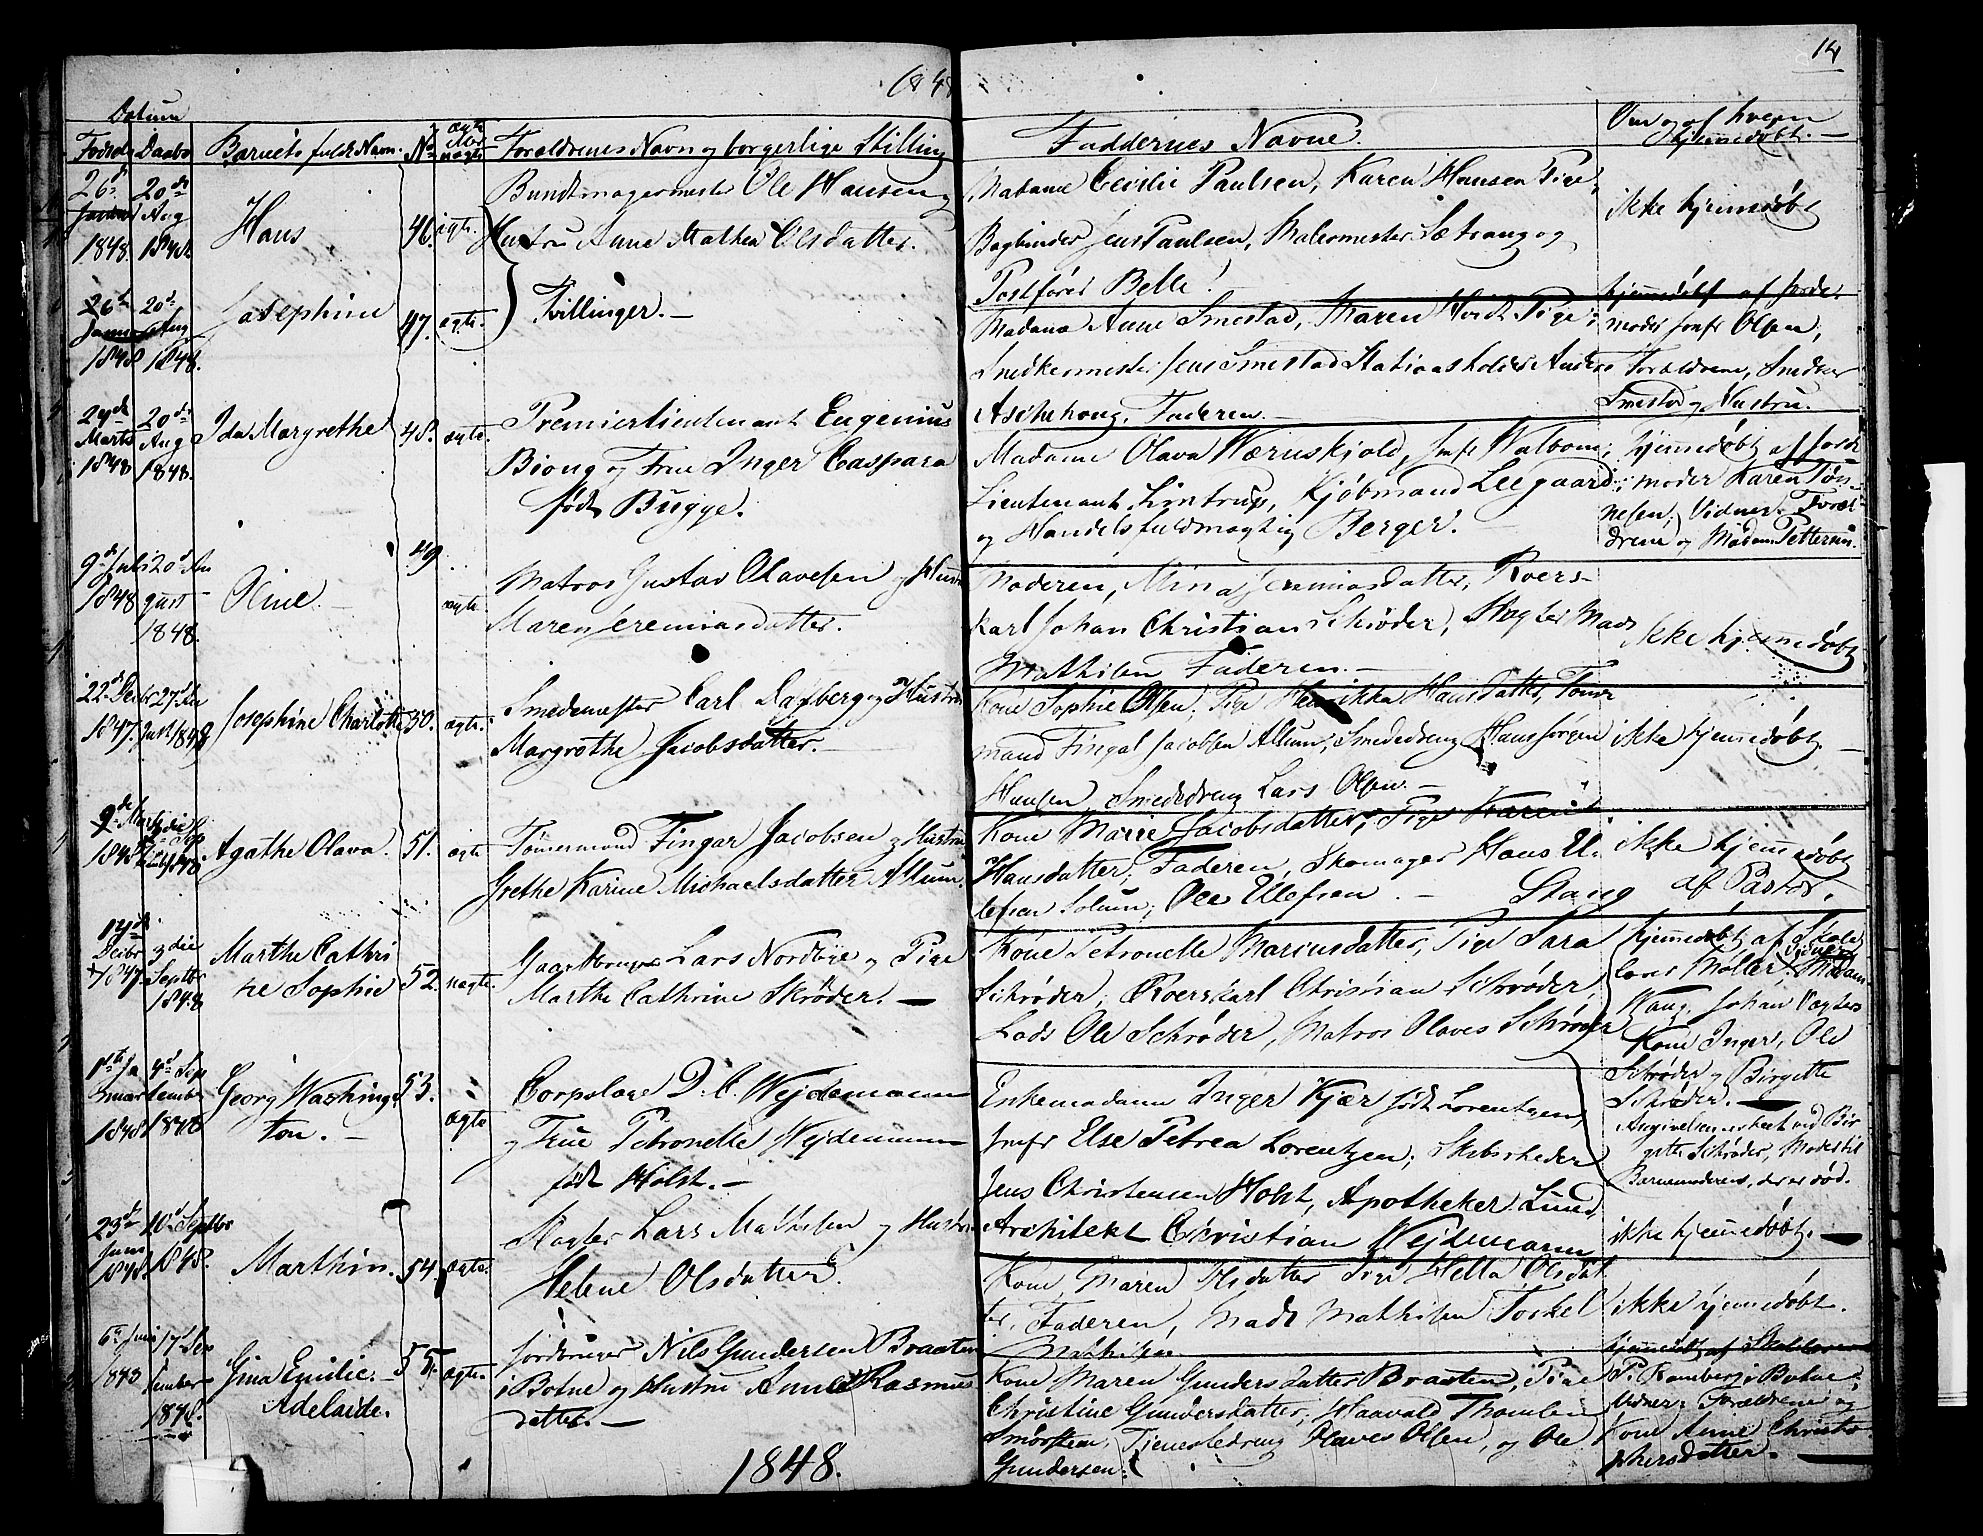 1848
14
Datum
Fødsel Daabs Barnets fulde Navn. No ægte eller uægte Forældrenes Navn og borgerlige Stilling
Faddernes Navne.
Om og af hvem hjemmedøbt.
26de Januar 1848. 20de Aug 1848
Hans
46. ægte.
Bundtmagermester Ole Hansen og
Hustru Anne Mathea Olsdatter.
Madame Cecilie Paulsen, Karen Hansen Pige,
Bogbinder Jens Paulsen, Malermester Sætrang og
Postfører Belle.
ikke hjemmedøbt
26de Januar 1848 20de Aug 1848.
Josephine
47. ægte.
Tvillinger.
Madame Anne Smestad, Maren Hvidt Pige;
Snedkermester Jens Smestad Stationsholder Anders
Aschehoug, Faderen.
hjemmedøbt af Jorde-
moder Jomfr Olsen,
Forældrene, Snedker
Smestad og Hustru.
24de Marts 1848 20de Aug 1848.
Ida Margrethe
48. ægte.
Premierlieutenant Eugenius
Biong og Frue Inger Caspara
født Bugge.
Madame Olava Wærnskjold, Jomfr Walbom;
Lieutenant Lintrup, Kjøbmand Leegaard;
og Handelsfuldmægtig Berger.
hjemmedøbt af Jorde-
moder Karen Tøn-
nesen, Vidner: Foræl-
drene og Madam Pettersen.
9de Juli 1848 20de August 1848.
Oline.
49 ægte.
Matros Gustav Olavesen og Hustru
Maren Jeremiasdatter.
Moderen, Mina Jeremiasdatter, Roers-
karl Johan Christian Schrøder, Slagter Mads
Mathisen Faderen.
ikke hjemmedøbt
22de Decbr 1847. 27de August 1848
Josephine Charlotte
50. ægte.
Smedemester Carl Dagberg og Hustru
Margrethe Jacobsdatter.
Kone Sophie Olsen, Pige Henrikka Hansdatter, Tømmer-
mand Fingal Jacobsen Allum, Smededreng Hans Jørgen
Hansen, Smededreng Lars Olsen.
ikke hjemmedøbt.
9de Marts 1848
Agathe Olava.
51. ægte
Tømmermand Fingar Jacobsen og Hustru
Grethe Karine Michaelsdatter Allum.
Kone Marie Jacobsdatter, Pige Karen
Hansdatter, Faderen, Skomager Hans El-
lefsen Solum, Ole Ellefsen. Stang
ikke hjemmedøbt
af Pastor.
14de Decbr 1847. 3die Septbr 1848
Marthe Cathri
ne Sophie
52. uægte.
Gaardbruger Lars Nordbye og Pige
Marthe Cathrine Skrøder.
Kone Petronelle Mariusdatter, Pige Sara
Schrøder, Roerskarl Christian Schrøder,
Lods Ole Schrøder, Matros Olaves Schrøder
hjemmedøbt af Skole-
lærer Møller, Vidner Madam
Wang, Johan Vægters
Kone Inger, Ole
Schrøder og Birgitte
Schrøder.
Angivelsen er skeet ved Bir-
gitte Schrøder, Moder til
Barnemoderen, der er død.
1ste Januar 1848 4de September 1848
Georg Washing-
ton.
53. ægte
Corpslæge D. C. Wejdemann
og Frue Petronelle Wejdemann
født Holst.
Enkemadame Inger Kjær født Lorentzen,
Jomfr Else Petrea Lorentzen; Skibsrheder
Jens Christensen Holst, Apotheker Lund,
Architekt Christian Wejdemann
ikke hjemmedøbt.
23de Juni 1848. 10de Septbr 1848.
Marthin.
54. ægte.
Slagter Lars Mathisen og Hustru
Helene Olsdatter.
Kone Maren Olsdatter Pige Helta Olsdat-
ter, Faderen, Mads Mathisen Torkel
Mathisen
ikke hjemmedøbt.
6te Juni 1848 17de September 1848.
Gina Emilie
Adelaide.
55. ægte.
Jordbruger Nils Gundersen Braaten
i Botne og Hustru Anne Rasmus-
datter.
Kone Maren Gundersdatter Braaten, Pige
Christine Gundersdatter, Haavald Thomesen
Smørsteen, Tjenestedreng Olaves Olsen, og Ole
Gundersen.
hjemmedøbt af Skolelærer
P. Ramberg i Botne
Vidner: Forældrene og
Kone Anne Christo-
phersdatter.
1848.